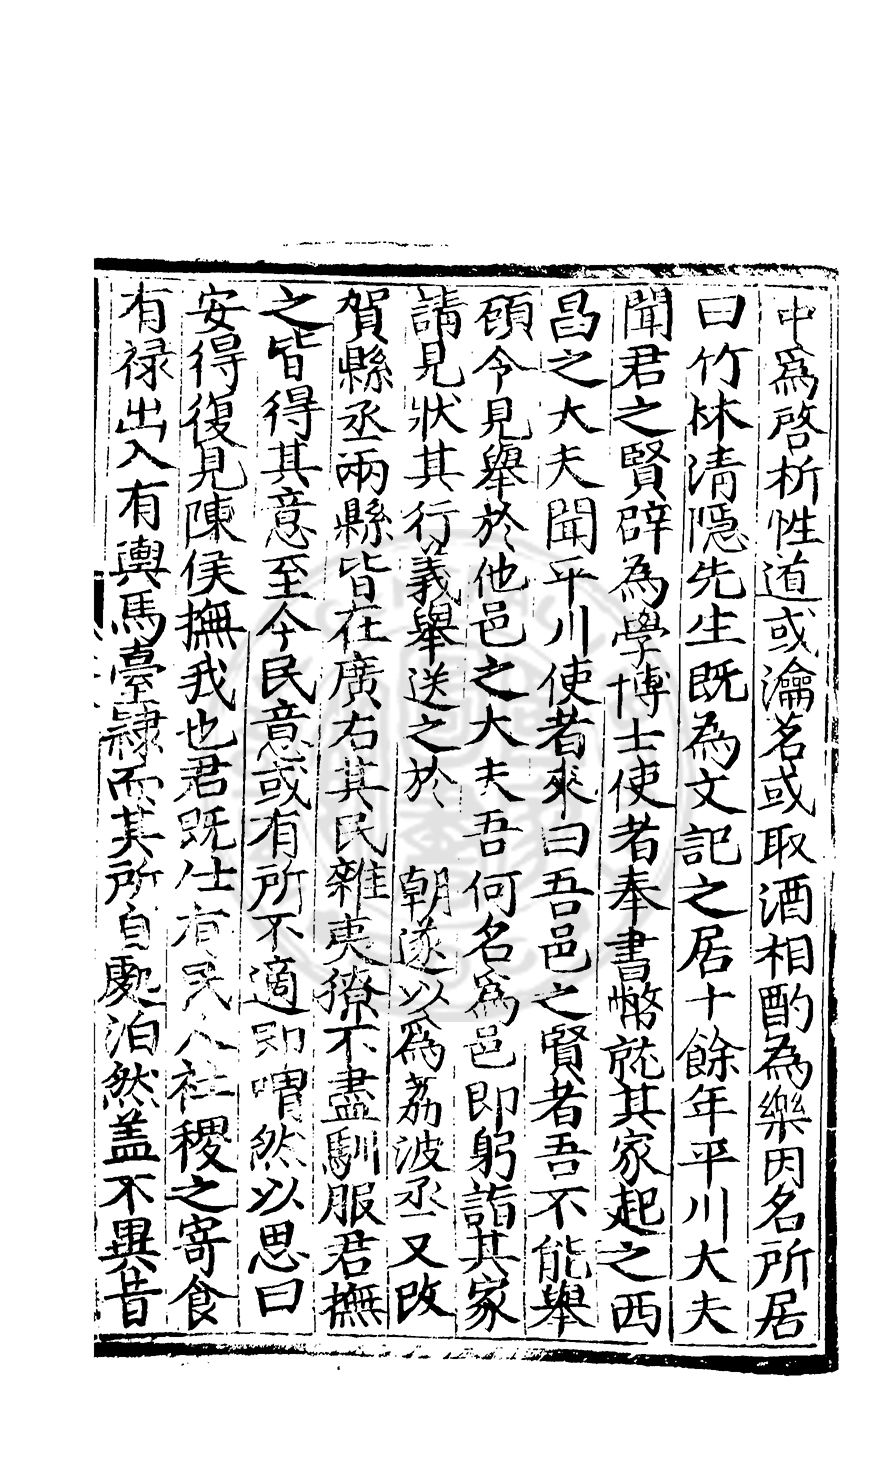 中爲啓析性道或瀹茗或取酒相酌為樂因名所居
曰竹林清隱先生既為文記之居十餘年平川大夫
聞君之賢辟為學博士使者奉書幣就其家起之西
昌之大夫聞平川使者來曰吾邑之賢者吾不能舉
頋令見舉於他邑之大夫吾何名爲邑即躬詣其家
請見狀其行義舉送之於　朝遂以爲荔波丞又改
賀縣丞兩縣皆在廣右其民雜夷獠不盡馴服君撫
之皆得其意至今民意或有所不適即喟然以思曰
安得復見陳侯撫我也君既仕有民人社稷之寄食
有禄出入有輿馬臺隸而其所自處泊然盖不異昔